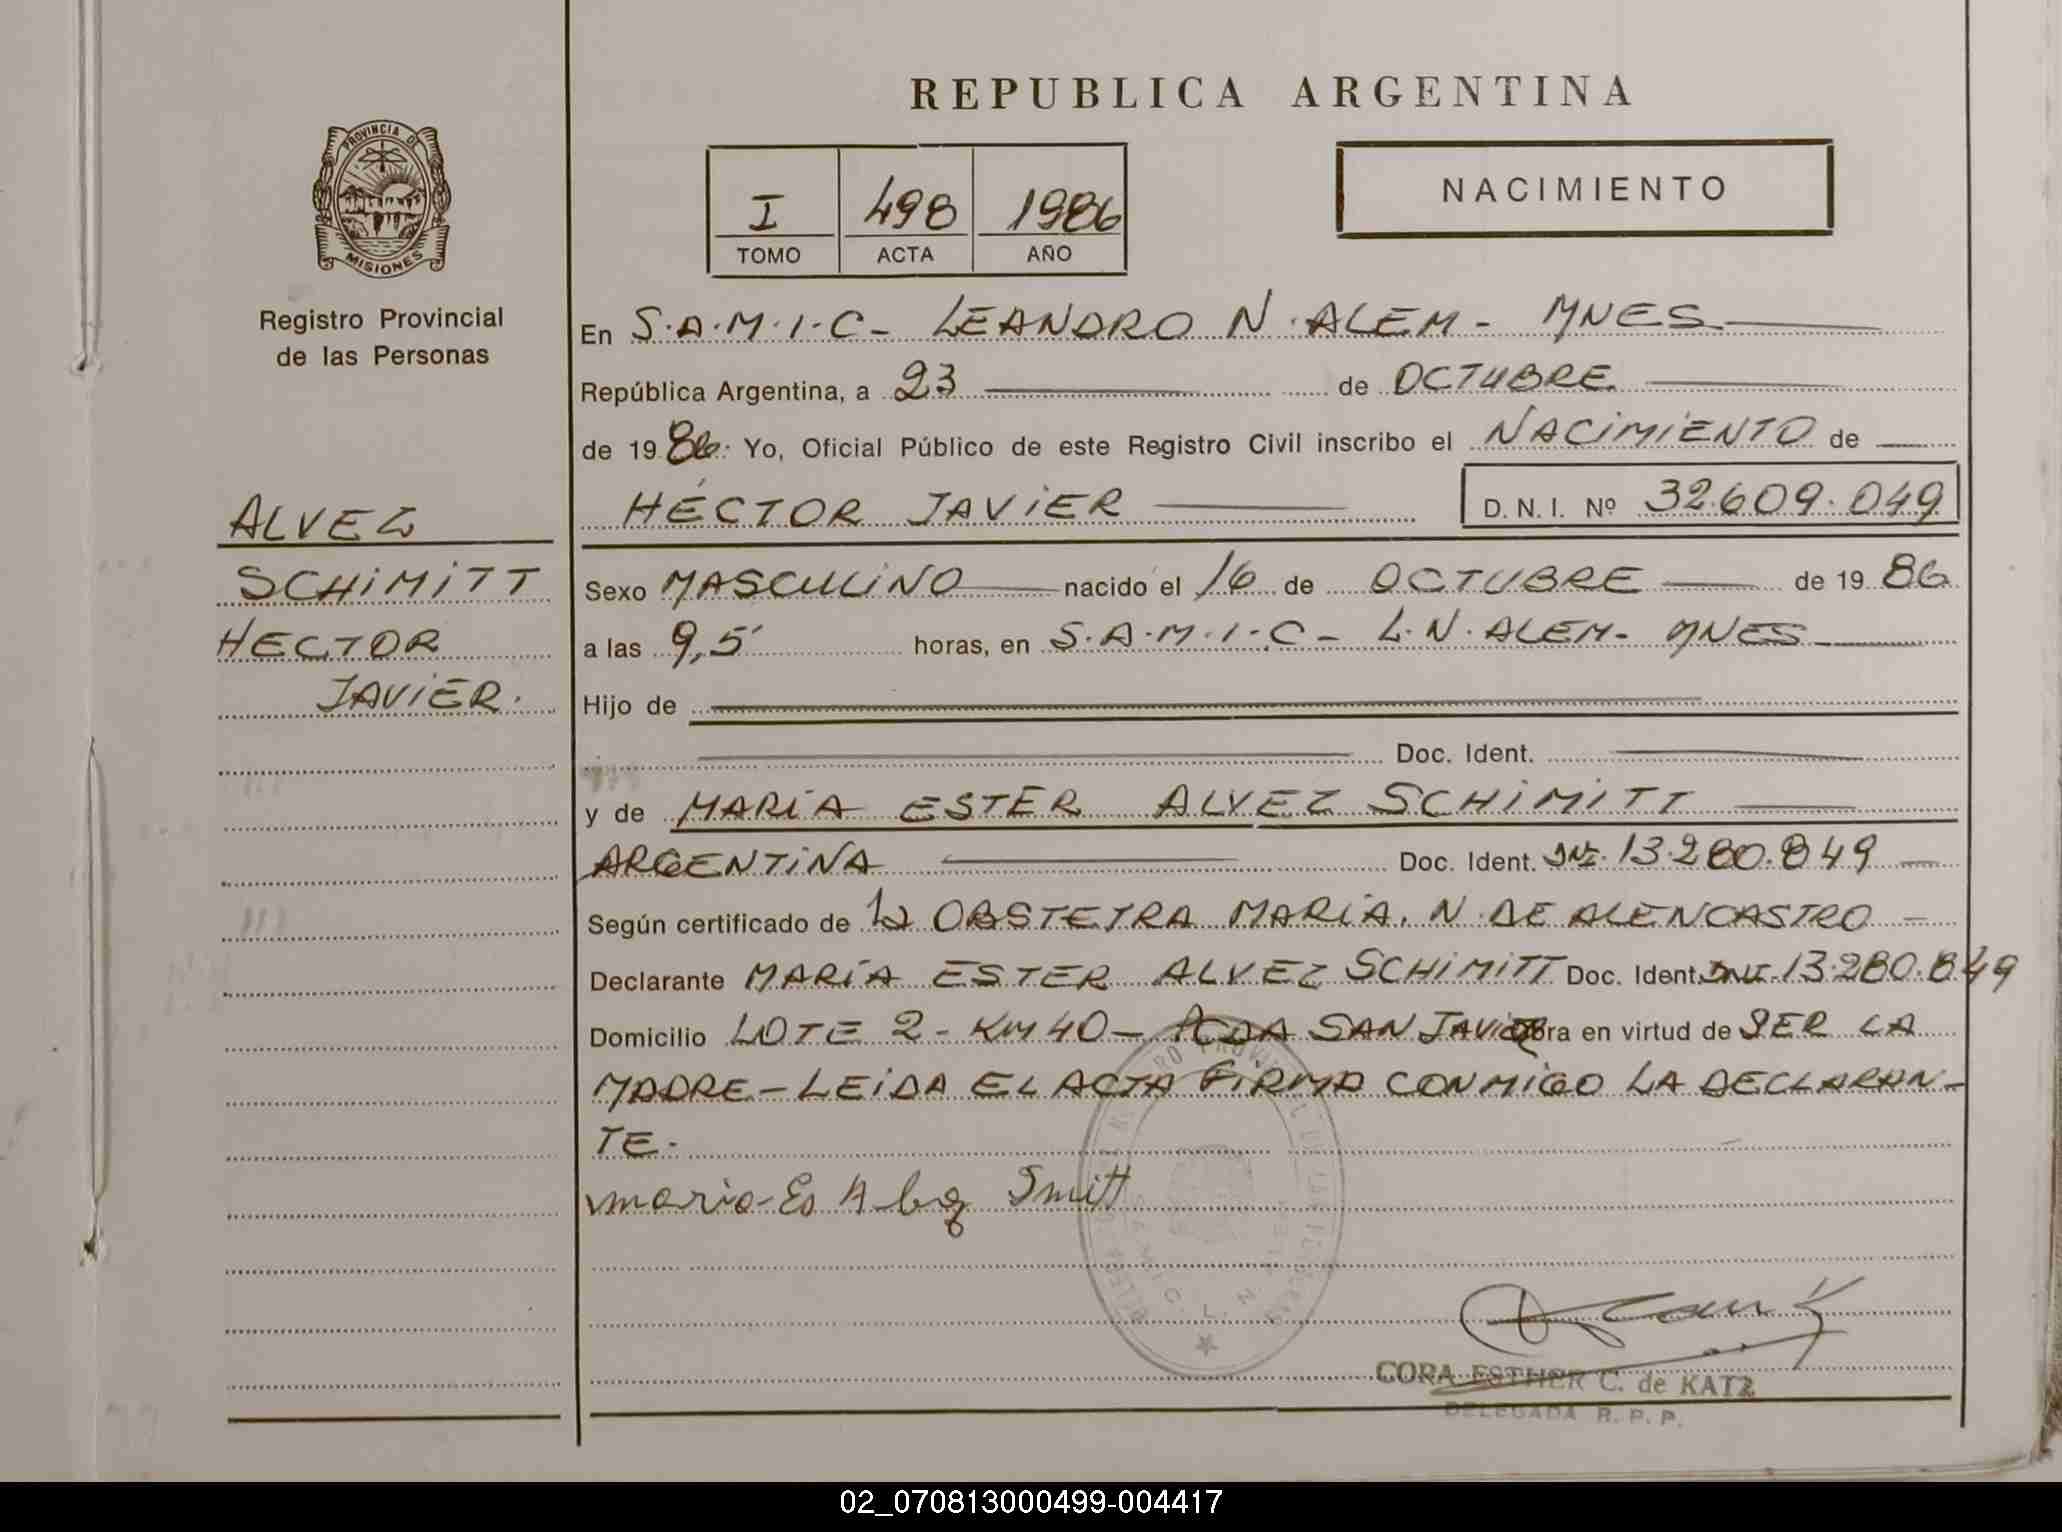 REPUBLICA ARGENTINA
PROVINCIA DE
MISIONES
Registro Provincial
de las Personas
I 498 1986
TOMO ACTA AÑO
NACIMIENTO
ALVEZ
SCHiMiTT
HECTOR
JAViER.
En S.A.M.I.C- LEANDRO N. ALEM - MNES
República Argentina, a 23 de OCTUBRE
de 1986. Yo, Oficial Público de este Registro Civil inscribo el NACiMiENTO de
HÉCTOR JAViER D. N. I. Nº 32.609.049
Sexo MASCULiNO nacido el 16 de OCTUBRE de 1986
a las 9,5' horas, en S.A.M.I.C - L.N. ALEM - MNES
Hijo de
Doc. Ident.
y de MARÍA ESTER ALVEZ SCHiMiTT
ARGENTiNA Doc. Ident. DNI. 13.280.849
Según certificado de la OBSTETRA MARÍA. N. DE ALENCASTRO
Declarante MARÍA ESTER ALVEZ SCHiMiTT Doc. Ident. DNI. 13.280.849
Domicilio LOTE 2 - KM 40 - PCDA SAN JAViER Obra en virtud de SER LA
MADRE - LEiDA EL ACTA FiRMA CONMiGO LA DECLARAN-
TE.
maria Es Smitt
CORA ESTHER C. de KATZ
DELEGADA R. P. P.
02_070813000499-004417